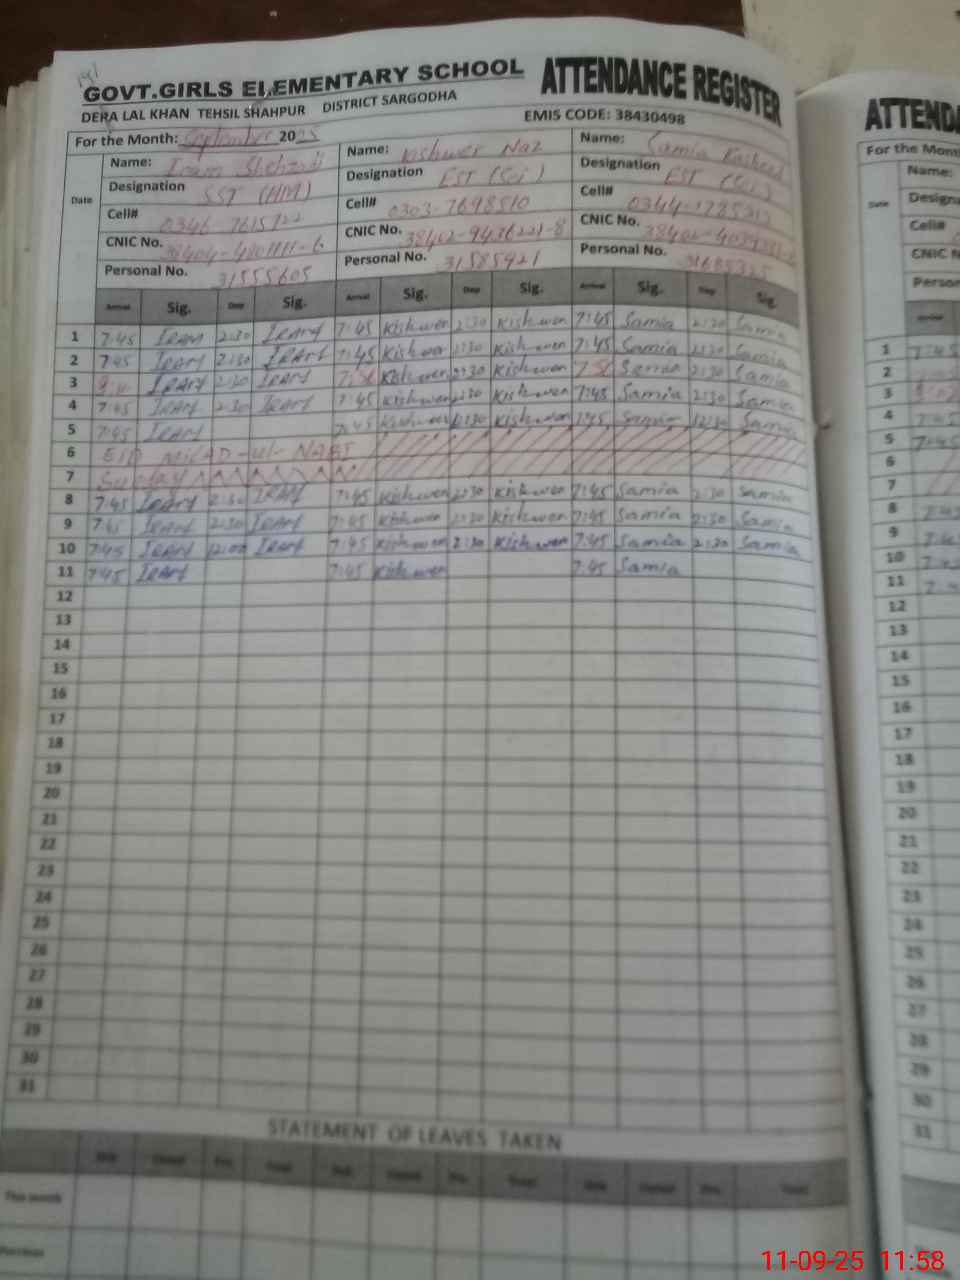 GOVT.GIRLS ELEMENTARY SCHOOL ATTENDANCE REGISTER
DERA LAL KHAN TEHSIL SHAHPUR DISTRICT SARGODHA EMIS CODE: 38430498
For the Month: September 2025
Name: Iram Shehzadi Name: Kishwer Naz Name: Samia Rasheed
Designation SST (HM) Designation EST (Sci) Designation EST (Sci)
Cell# Cell# 0303-7698510 Cell#
CNIC No. CNIC No. 38402-9436221-8 CNIC No.
Personal No. 31555605 Personal No. 31585421 Personal No.
Date Arrival Sig. Dep Sig. Arrival Sig. Dep Sig. Arrival Sig. Dep Sig.
1 7:45 IRAM 2:30 IRAM 7:45 Kishwer 2:30 Kishwer 7:45 Samia 2:30 Samia
2 7:45 IRAM 2:30 IRAM 7:45 Kishwer 2:30 Kishwer 7:45 Samia 2:30 Samia
3 IRAM 2:30 IRAM Kishwer 2:30 Kishwer Samia 2:30 Samia
4 7:45 IRAM 2:30 IRAM 7:45 Kishwer 2:30 Kishwer 7:45 Samia 2:30 Samia
5 7:45 IRAM 7:45 Kishwer Kishwer 7:45 Samia Samia
6 EID MILAD-ul-NABI
7 Sunday
8 7:45 IRAM 2:30 IRAM 7:45 Kishwer 2:30 Kishwer 7:45 Samia 2:30 Samia
9 7:45 IRAM 2:30 IRAM 7:45 Kishwer 2:30 Kishwer 7:45 Samia 2:30 Samia
10 7:45 IRAM 12:00 IRAM 7:45 Kishwer 2:30 Kishwer 7:45 Samia 2:30 Samia
11 7:45 IRAM 7:45 Kishwer 7:45 Samia
12
13
14
15
16
17
18
19
20
21
22
23
24
25
26
27
28
29
30
31
STATEMENT OF LEAVES TAKEN
This month
Previous
ATTENDA
For the Mon
Name:
Designa
Cell#
CNIC N
Person
1 7:45
2
3
4 7:45
5 7:45
6
7
8 7:45
9
10
11
12
13
14
15
16
17
18
19
20
21
22
23
24
25
26
27
28
29
30
31
11-09-25 11:58